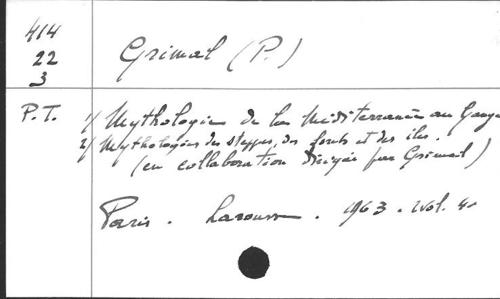 414
22
3
Grimal (P.)
P.T. 1/ Mythologies de la Méditerranée au Gange
2/ Mythologies des steppes, des forêts et des îles.
(en collaboration dirigée par Grimal)
Paris. Larousse. 1963. 2 vol. 4º